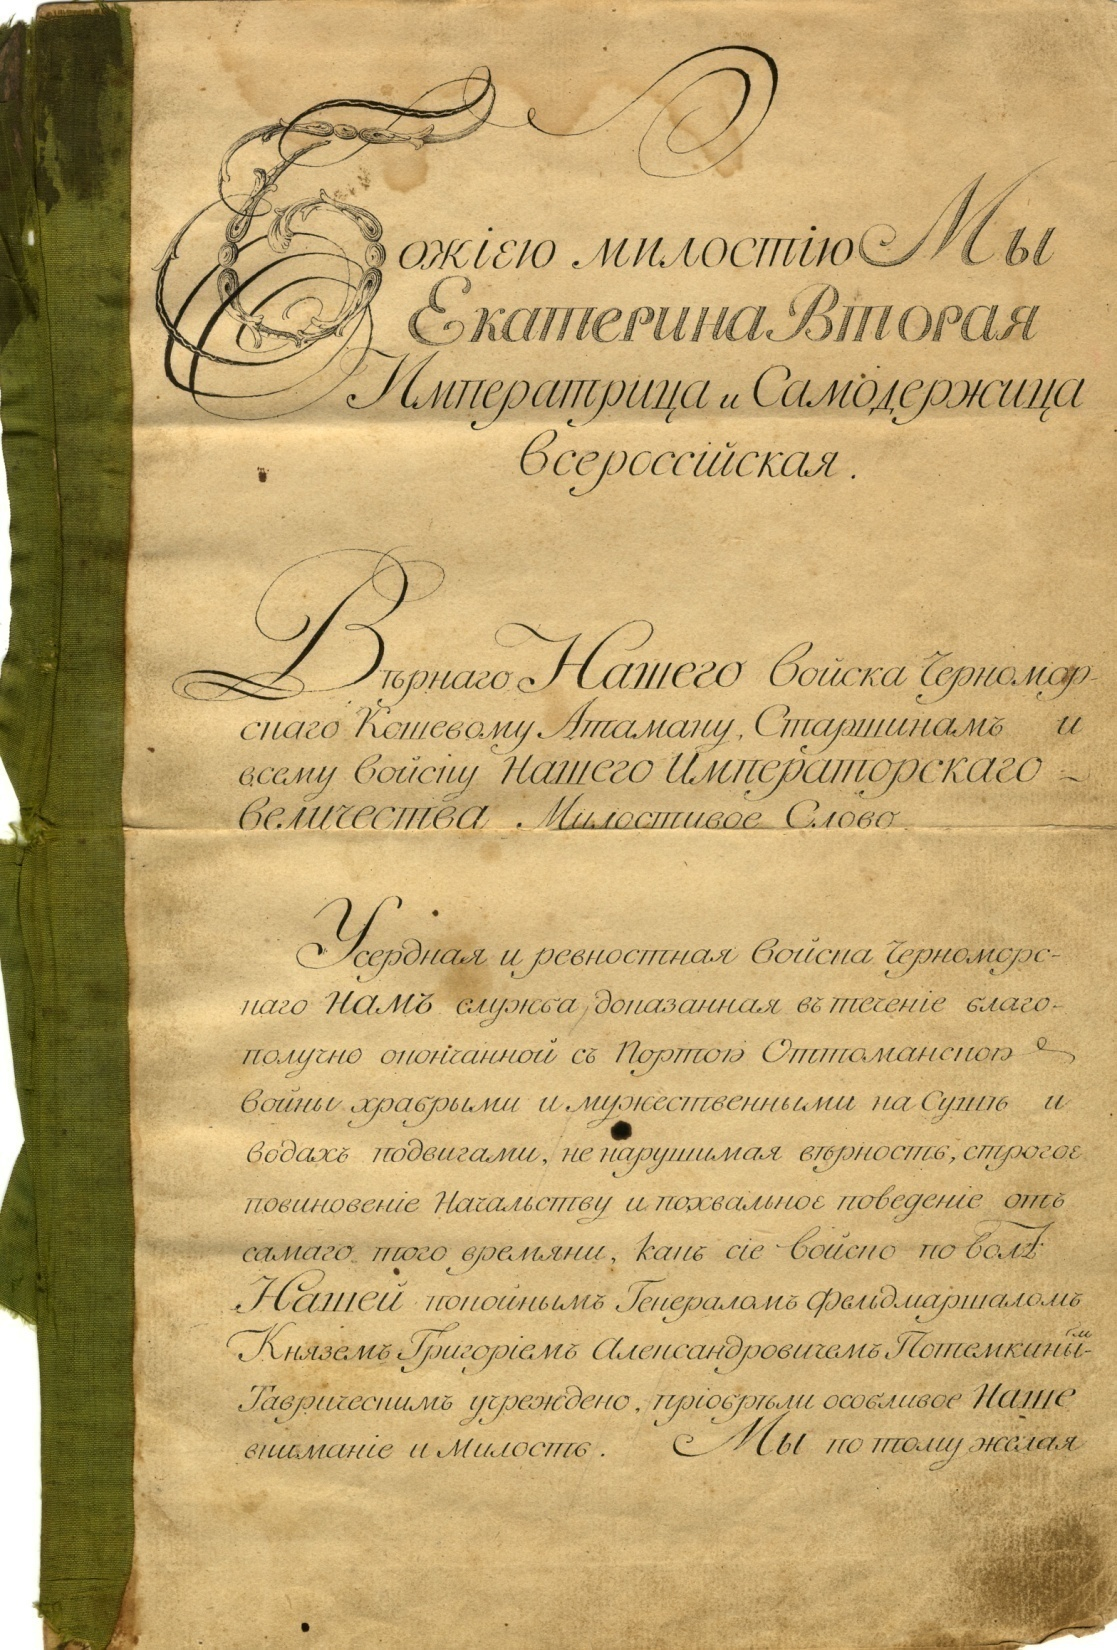 Божіею милостію Мы
Екатерина Вторая
Императрица и Самодержица
всероссійская.
Вѣрнаго Нашего войска Черномор-
скаго Кошевому Атаману, Старшинамъ и
всему войску Нашего Императорскаго
величества Милостивое Слово
Усердная и ревностная войска Черноморс-
каго Намъ служба, доказанная въ теченіе благо-
получно оконченной съ Портою Оттоманскою
войны храбрыми и мужественными на Сушѣ и
водахъ подвигами, не нарушимая вѣрность, строгое
повиновеніе Начальству и похвальное поведеніе отъ
самаго того времяни, какъ сіе войско по волѣ
Нашей покойнымъ Генераломъ Фельдмаршаломъ
Княземъ Григоріемъ Александровичемъ Потемкинымъ
Таврическимъ учреждено, пріобрѣли особливое Наше
вниманіе и Милость. Мы по тому желая